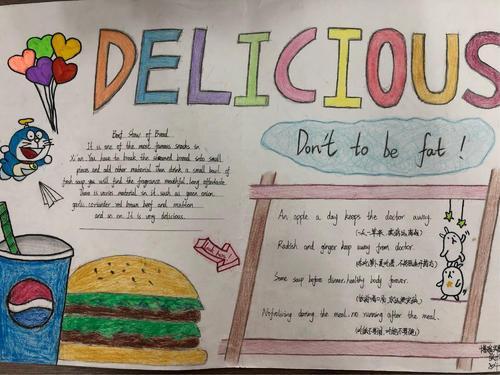 DELICIOUS
Don't to be fat!
Beef Stew of Bread
It is one of the most famous snacks in
Xi'an. You have to break the steamed bread into small
pieces and add other material. Then drink a small bowl of
fresh soup you will find the fragrance mouthful long aftertaste.
There is varies material in it such as green onion
garlic coriander red brown beef and mutton
and so on. It is very delicious.
An apple a day keeps the doctor away.
(一天一苹果，疾病远离我)
Radish and ginger keep away from doctor.
Some soup before dinner, healthy body forever.
No frolicing during the meal. no running after the meal.